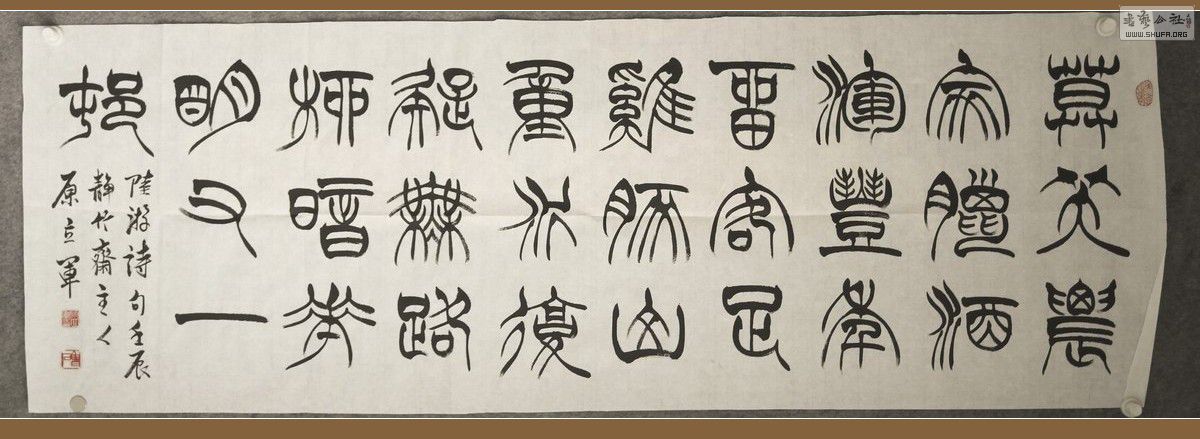 莫笑農
家臘酒
渾豐年
留客足
雞豚山
重水復
疑無路
柳暗華
明又一
邨
陸游詩句壬辰
静竹齋主人
原立軍
書藝公社
WWW.SHUFA.ORG